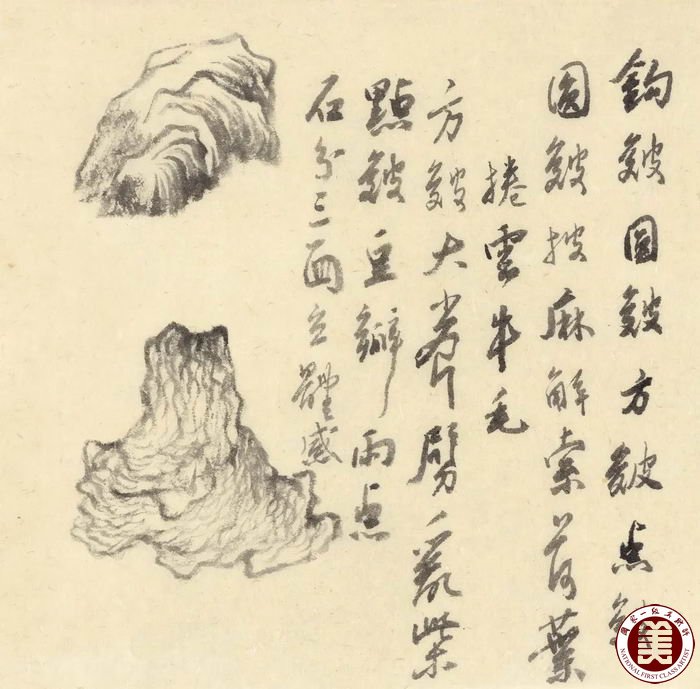 鈎皴圓皴方皴点皴
圓皴披麻解索荷葉
捲雲牛毛
方皴大斧劈亂柴
點皴豆瓣雨点
石分三面立體感
國家一级美術師
美
NATIONAL FIRST CLASS ARTIST